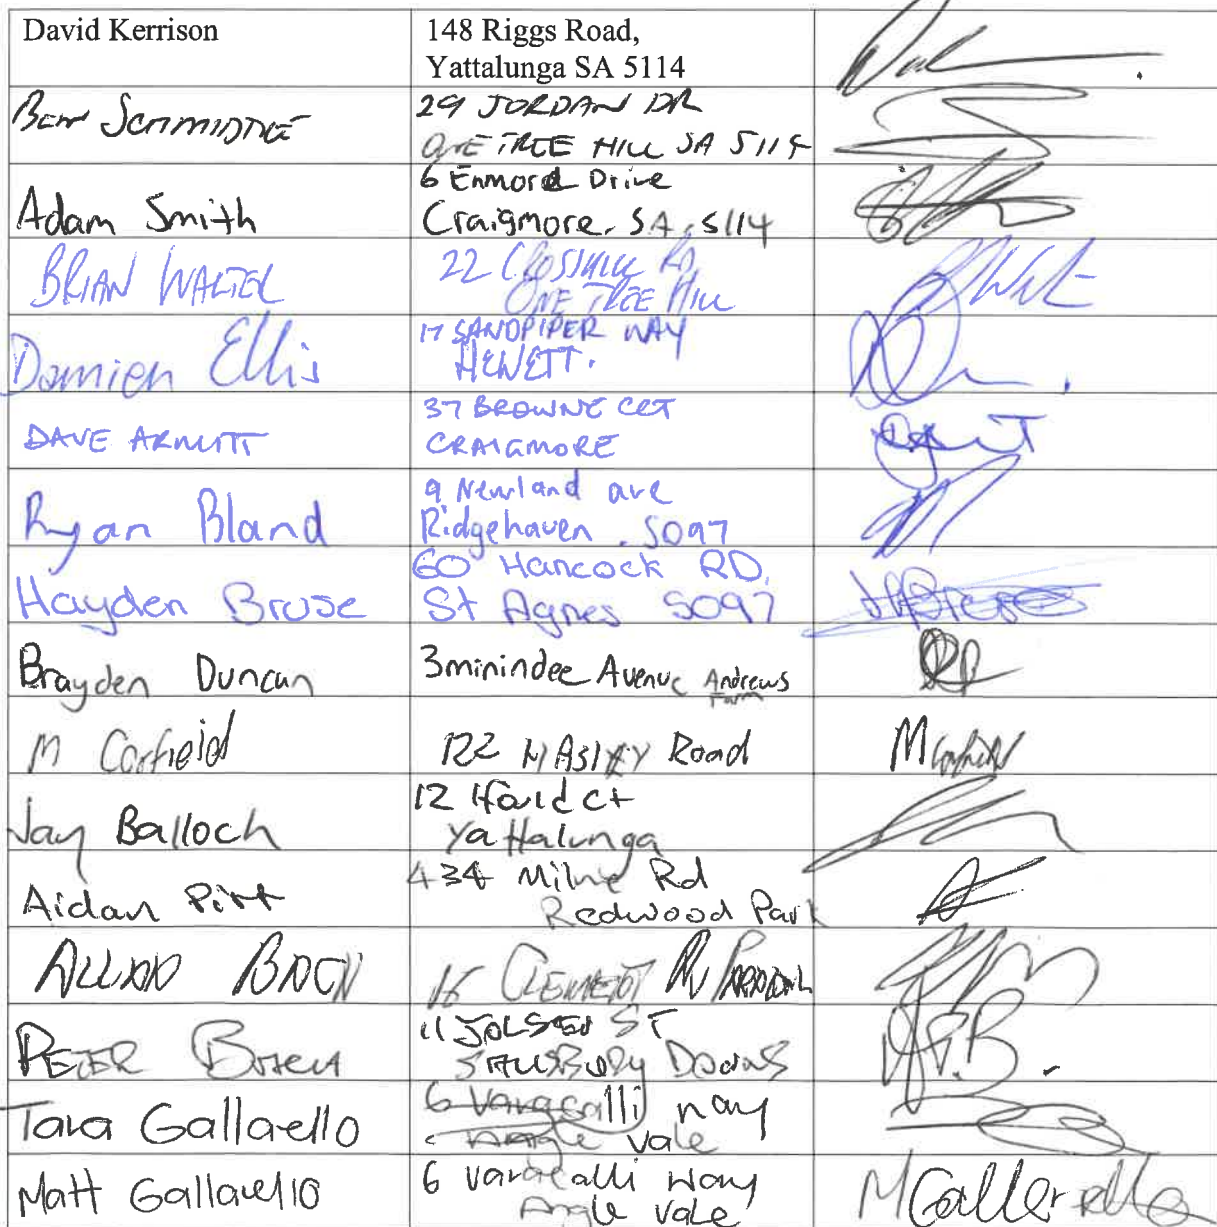 David Kerrison
148 Riggs Road,
Yattalunga SA 5114
Ben
29 JORDAN DR
ONE TREE HILL SA 5114
Adam Smith
6 Enmore Drive
Craigmore. SA. 5114
BRIAN WALTER
22 RD
ONE TREE HILL
Damien Ellis
17 SANDPIPER WAY
HEWETT.
DAVE ARNUTT
37 BROWNE CRT
CRAIGMORE
Ryan Bland
9 Newland ave
Ridgehaven . 5097
Hayden Bruse
60 Hancock RD,
St Agnes 5097
Brayden Duncan
3 minindee Avenue Andrews
Farm
M Corfield
122 Road
M Corfield
Jay Balloch
12 ct
Yattalunga
Aidan Pitt
434 Milne Rd
Redwood Park
16 CLEMENT
PETER
11 ST
SALISBURY Downs
Tara Gallarello
6 way
Angle Vale
Matt Gallarello
6 way
Angle Vale